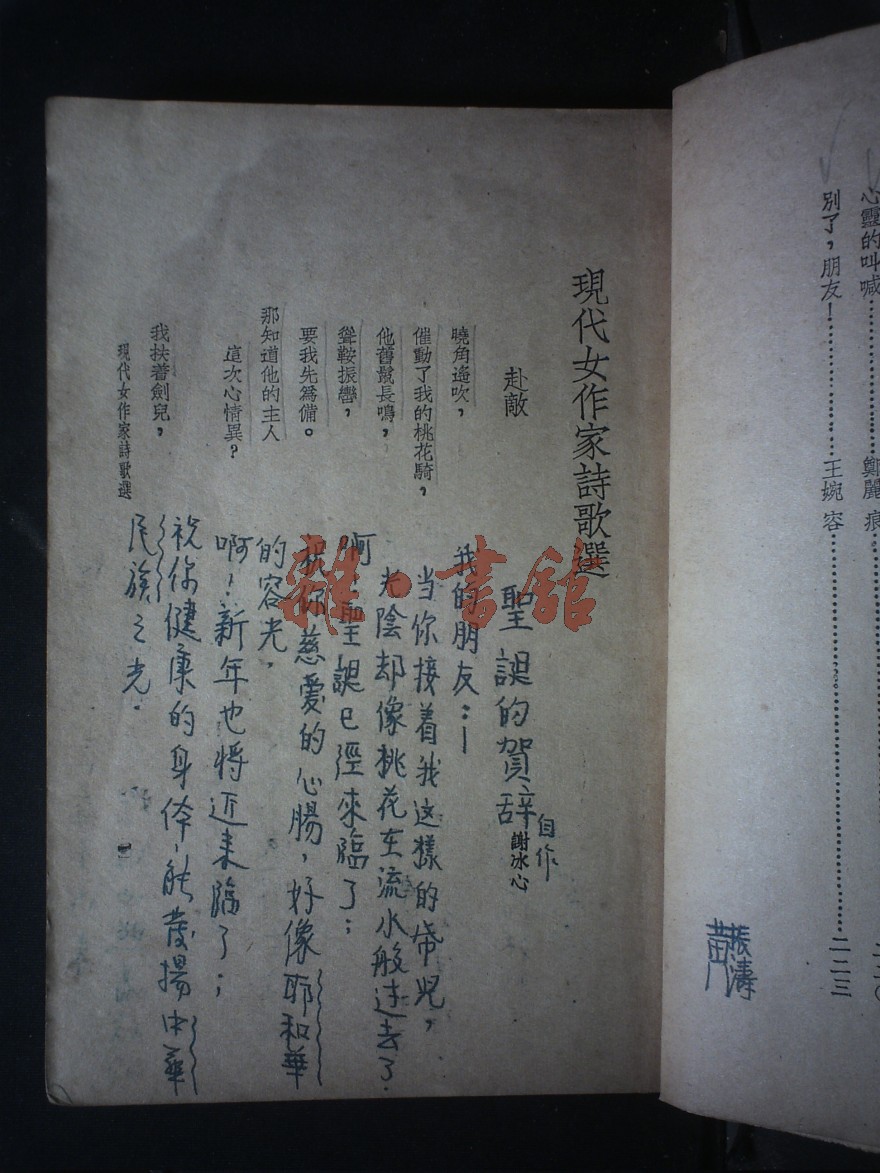 心靈的叫喊…………鄭麗痕…………
別了，朋友！…………王婉容…………二二三
黃振濤
現代女作家詩歌選
赴敵
謝冰心
曉角遙吹，
催動了我的桃花騎，
他舊鬣長鳴，
聳鞍振轡，
要我先爲備。
那知道他的主人
這次心情異？
我扶着劍兒，
現代女作家詩歌選
一
聖誕的賀辞
自作
我的朋友：—
当你接着我这樣的帋児，
光陰却像桃花在流水般过去了.
啊！聖誕已經來臨了；
祝你慈愛的心腸，好像耶和華
的容光，
啊！新年也將近来臨了；
祝你健康的身体，能發揚中華
民族之光.
雜·書館